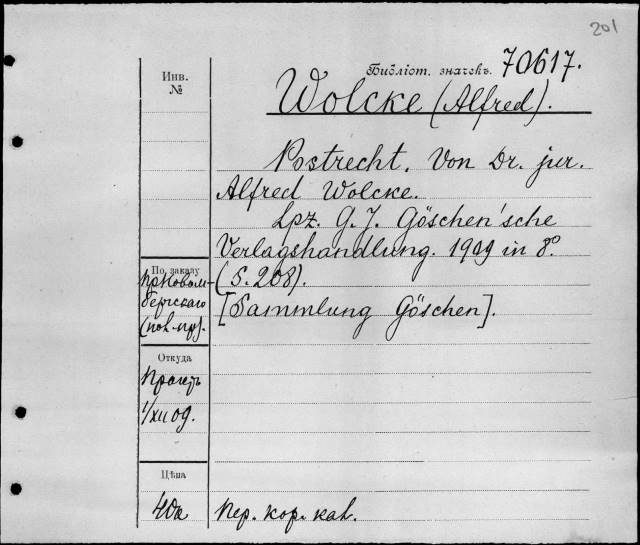 201
Библіот. значекъ. 70617.
Инв.
№
Wolcke (Alfred).
Postrecht. Von Dr. jur.
Alfred Wolcke.
Lpz. G. J. Göschen'sche
Verlagshandlung. 1909 in 8º
(S. 208).
[Sammlung Göschen].
По заказу
бергскаго
Откуда
1/XII 09.
Цѣна
Пер. кор. кал.